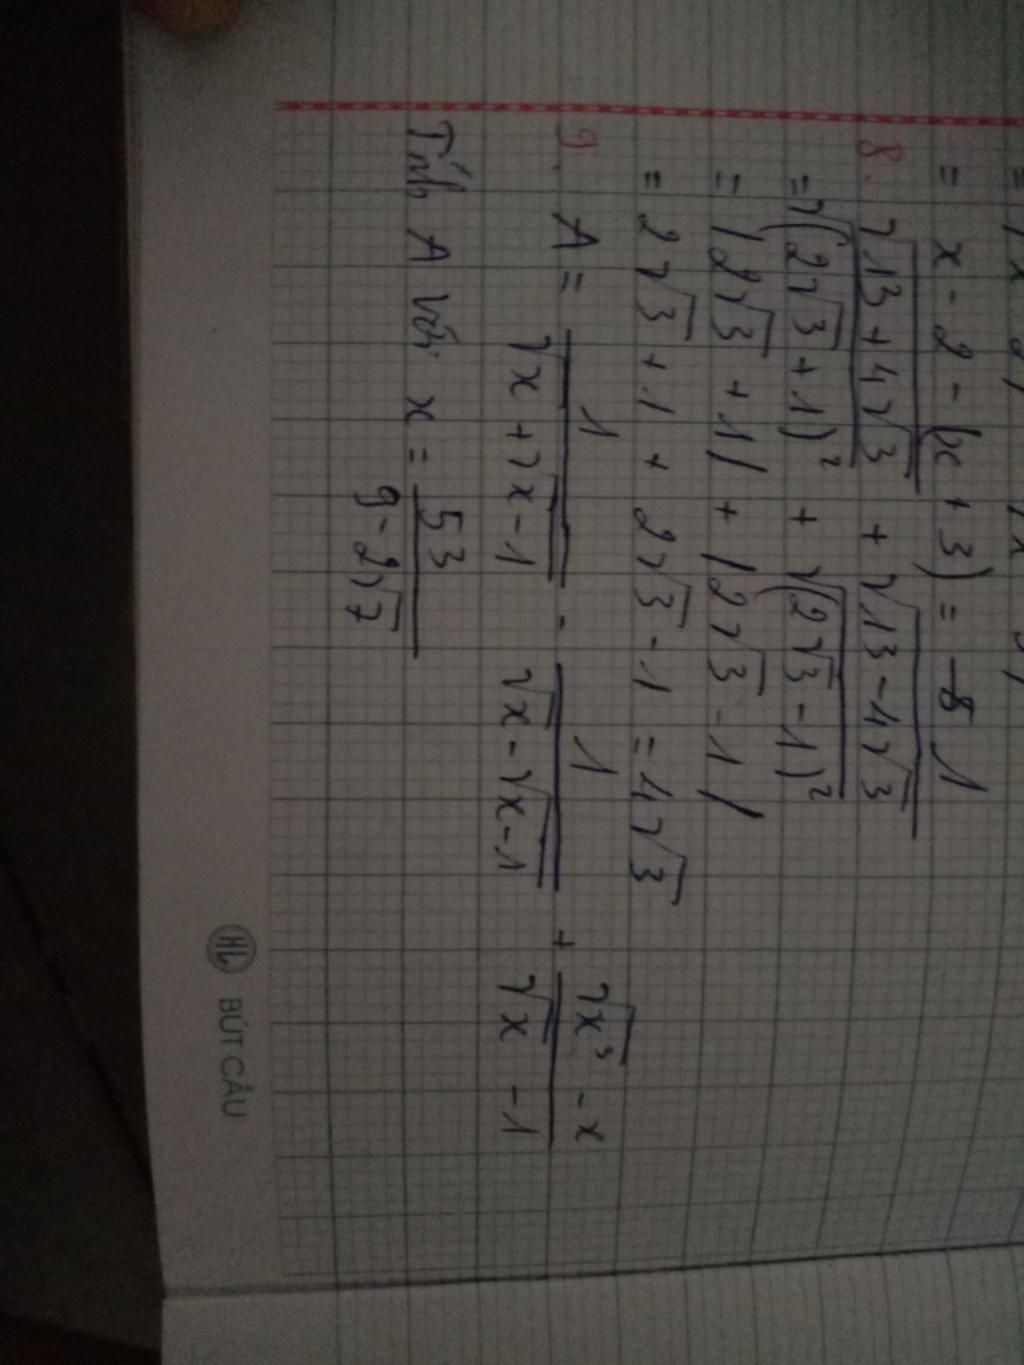 = x - 2 - (x + 3) = -8 1
8. √(13 + 4√3) + √(13 - 4√3)
= √((2√3 + 1)²) + √((2√3 - 1)²)
= |2√3 + 1| + |2√3 - 1|
= 2√3 + 1 + 2√3 - 1 = 4√3
9. A = 1/(√x + √(x - 1)) - 1/(√x - √(x - 1)) + (√x³ - x)/(√x - 1)
Tính A với x = 53/(9 - 2√7)
HL BÚT CẦU